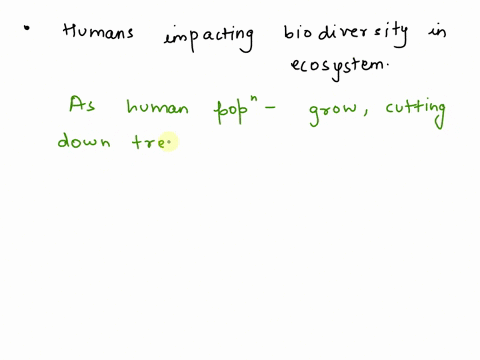 • Humans impacting biodiversity in
ecosystem.
As human popⁿ - grow, cutting
down tre